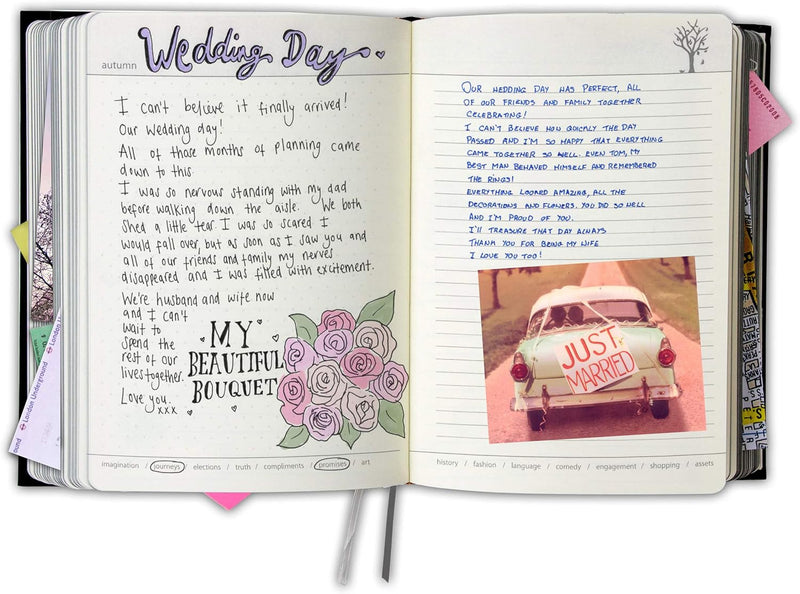 autumn
Wedding Day
I can't believe it finally arrived!
Our wedding day!
All of those months of planning came
down to this.
I was so nervous standing with my dad
before walking down the aisle. We both
shed a little tear. I was so scared I
would fall over, but as soon as I saw you and
all of our friends and family my nerves
disappeared and I was filled with excitement.
We're husband and wife now
and I can't
wait to
spend the
rest of our
lives together.
Love you. xxx
MY
BEAUTIFUL
BOUQUET
imagination / journeys / elections / truth / compliments / promises / art
London Underground
London Un
OUR WEDDING DAY WAS PERFECT, ALL
OF OUR FRIENDS AND FAMILY TOGETHER
CELEBRATING!
I CAN'T BELIEVE HOW QUICKLY THE DAY
PASSED AND I'M SO HAPPY THAT EVERYTHING
CAME TOGETHER SO WELL. EVEN TOM, MY
BEST MAN BEHAVED HIMSELF AND REMEMBERED
THE RINGS!
EVERYTHING LOOKED AMAZING, ALL THE
DECORATIONS AND FLOWERS. YOU DID SO WELL
AND I'M PROUD OF YOU.
I'LL TREASURE THAT DAY ALWAYS
THANK YOU FOR BEING MY WIFE
I LOVE YOU TOO!
JUST
MARRIED
history / fashion / language / comedy / engagement / shopping / assets